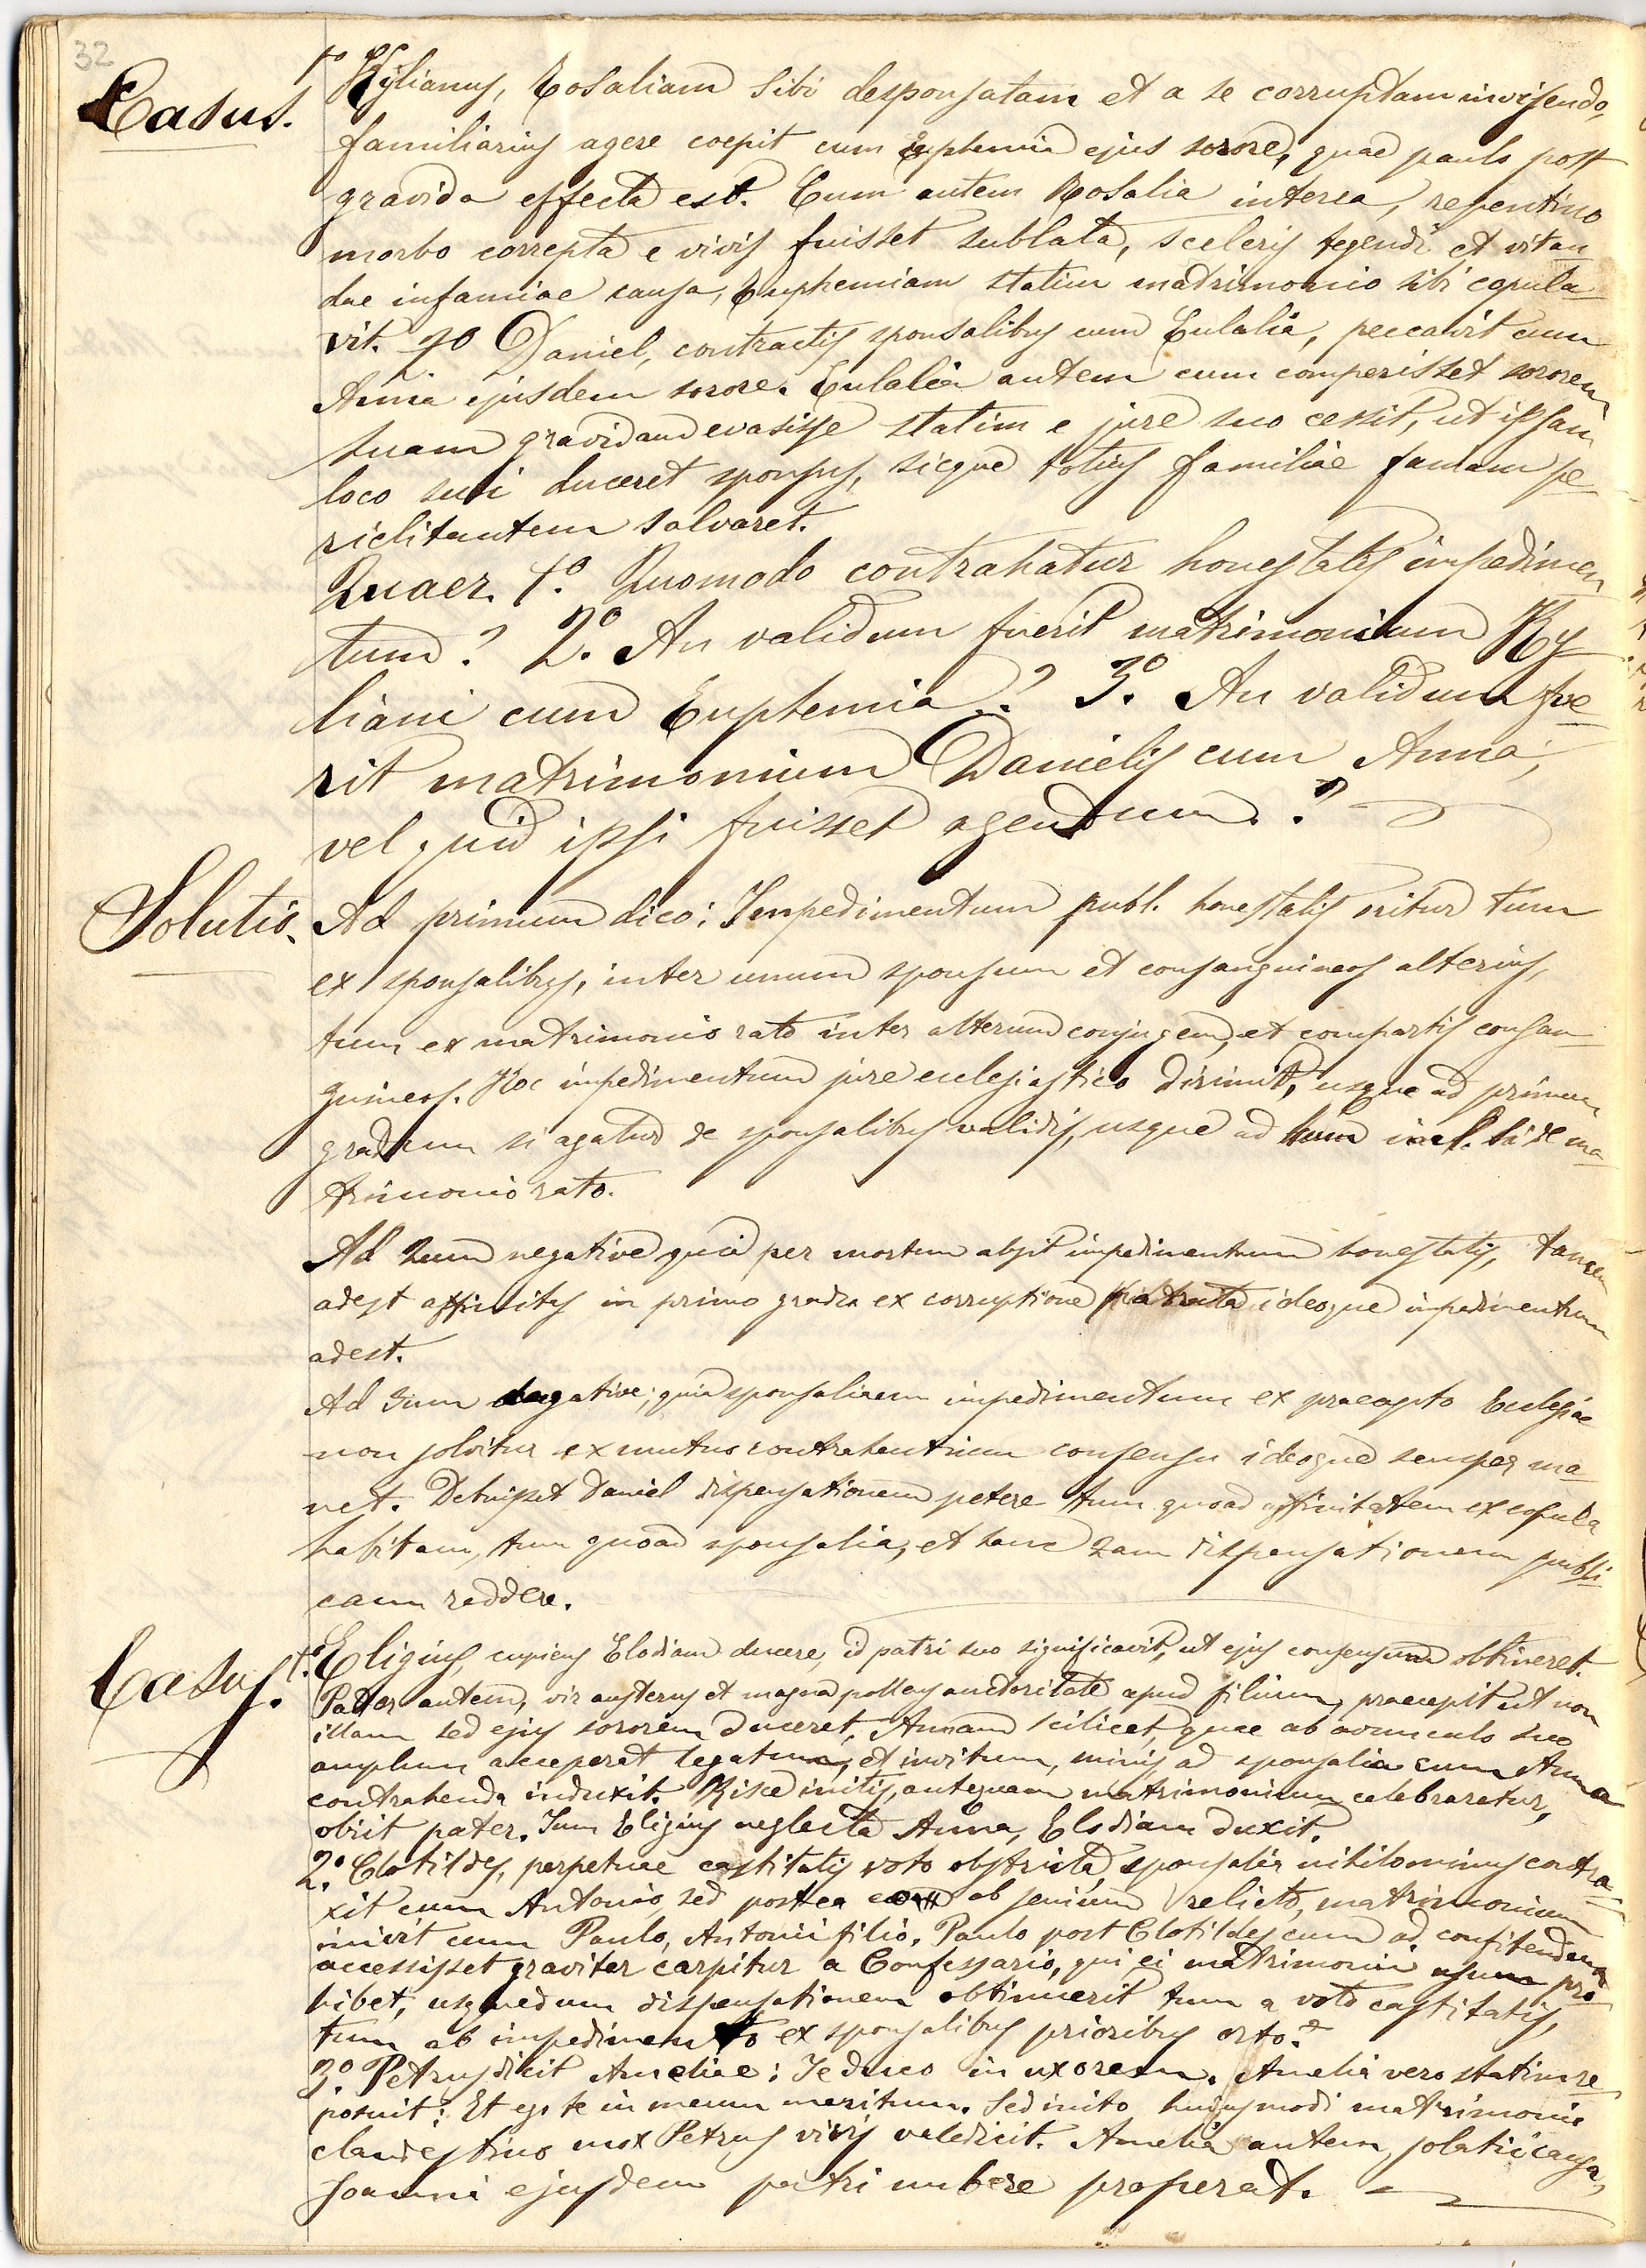 32
Casus.
1o Kylianus, Rosaliam sibi desponsatam et a se corruptam invisendo,
familiarius agere coepit cum Euphemia ejus sorore, quae paulo post
gravida effecta est. Cum autem Rosalia interea, repentino
morbo correpta e vivis fuisset sublata, sceleris tegendi et vitan
dae infamiae causa, Euphemiam statim matrimonio sibi copula
vit. 2o Daniel, contractis sponsalibus cum Eulalia, peccavit cum
Anna ejusdem sorore. Eulalia autem cum comperisset sororem
suam gravidam evasisse statim e jure suo cessit, ut ipsam
loco sui duceret sponsus, sicque totius familiae famam pe
riclitantem salvaret.
Quaer. 1o. Quomodo contrahatur honestatis impedimen
tum? 2o. An validum fuerit matrimonium Ky
liani cum Euphemia? 3o. An validum fue
rit matrimonium Danielis cum Anna,
vel quid ipsi fuisset agendum.?
Solutio.
Ad primum dico: Impedimentum publ. honestatis oritur tum
ex sponsalibus, inter unum sponsum et consanguineos alterius,
tum ex matrimonio rato inter alterum conjugem, et compartis consan
guineos. Hoc impedimentum jure ecclesiastico dirimit, usque ad primum
gradum si agatur de sponsalibus validis, usque ad incl. si de ma
trimonio rato.
Ad 2um negative quia per mortem absit impedimentum honestatis, tamen
adest affinitas in primo gradu ex corruptione ideoque impedimentum
adest.
Ad 3um negative; quia sponsalium impedimentum ex praecepto Ecclesiae
non solvitur ex mutuo contrahentium consensu ideoque semper ma
net. Debuisset Daniel dispensationem petere tum quoad affinitatem ex copula
habitam, tum quoad sponsalia, et hanc 2am dispensationem publi
cam reddere.
Casus.
1.o Eligius, cupiens Elodiam ducere, id patri suo significavit, ut ejus consensum obtineret.
Pater autem, vir austerus et magna pollens auctoritate apud filium, praecepit ut non
illam sed ejus sororem duceret, Annam scilicet, quae ab avunculo suo
amplum acceperat legatum, et invitum, minis ad sponsalia cum Anna
contrahenda induxit. Hisce initis, antequam matrimonium celebraretur,
obiit pater. Tum Eligius neglecta Anna, Elodiam duxit.
2.o Clotildes, perpetuae castitatis voto obstricta, sponsalia nihilominus contra
xit cum Antonio, sed postea ob senium relicto, matrimonium
inivit cum Paulo, Antonii filio. Paulo post Clotildes cum ad confitendum
accessisset graviter carpitur a Confessario, qui ei matrimonii usum pro
hibet, usquedum dispensationem obtinuerit tum a voto castitatis,
tum ab impedimento ex sponsalibus prioribus orto.
3.o Petrus dicit Ameliae: Te duco in uxorem. Amelia vero statim re
posuit: Et ego te in meum maritum. Sed inito hujusmodi matrimonio
clandestino mox Petrus vivis valedicit. Amelia autem, solatii causa,
Joanni ejusdem patri nubere properat.